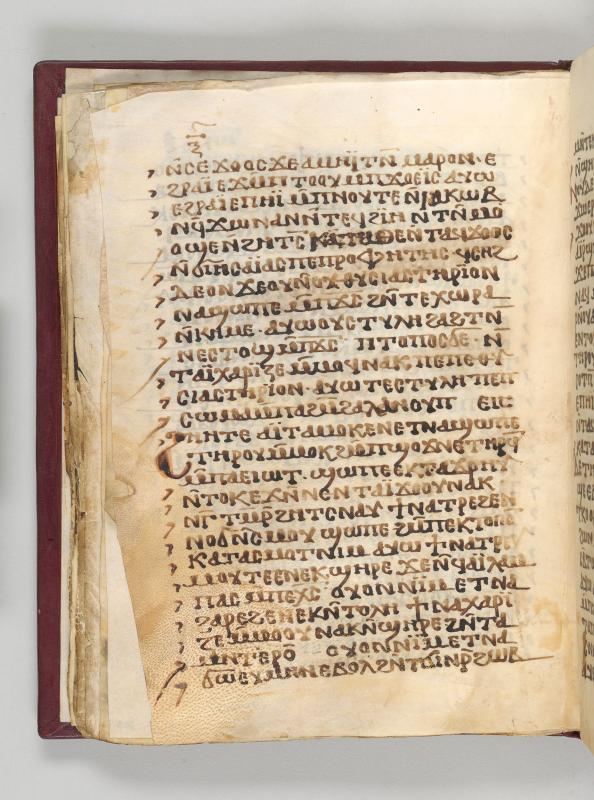 ⲛ̄ⲥⲉϫⲟⲟⲥ ϫⲉ ⲁⲙⲏⲓ̈ⲧⲛ̄ ⲙⲁⲣⲟⲛ · ⲉ
ϩⲣⲁⲓ̈ ⲉϫⲙ̄ ⲡⲧⲟⲟⲩ ⲙ̄ⲡϫⲟⲉⲓⲥ ⲁⲩⲱ
ⲉϩⲣⲁⲓ̈ ⲉⲡⲏⲓ̈ ⲙ̄ⲡⲛⲟⲩⲧⲉ ⲛ̄ⲓ̈ⲁⲕⲱⲃ
ⲛϥ̄ϫⲱ ⲛⲁⲛ ⲛ̄ⲧⲉϥϩⲓⲏ ⲛ̄ⲧⲛ̄ⲙⲟ
ⲟϣⲉ ⲛϩⲏⲧⲥ̄ ⲕⲁⲧⲁ ⲑⲉ ⲛⲧⲁϥϫⲟⲟⲥ
ⲛ̄ϭⲓ ⲏⲥⲁⲓ̈ⲁⲥ ⲡⲉⲡⲣⲟⲫⲏⲧⲏⲥ
ϫⲉ ⲟⲩⲛ̄ ⲟⲩⲑⲩⲥⲓⲁⲥⲧⲏⲣⲓⲟⲛ
ⲛⲁϣⲱⲡⲉ ⲙ̄ⲡϫⲥ̄ ϩⲛ̄ ⲧⲉⲭⲱⲣⲁ
ⲛ̄ⲕⲏⲙⲉ · ⲁⲩⲱ ⲟⲩⲥⲧⲩⲗⲏ ϩⲁϩⲧⲛ̄
ⲛⲉⲥⲧⲟϣ ⲙ̄ⲡϫⲥ̄ · ⲡⲧⲟⲡⲟⲥ ⲇⲉ · ⲛ̄
ⲧⲁⲓ̈ⲭⲁⲣⲓⲍⲉ ⲙ̄ⲙⲟϥ ⲛⲁⲕ, ⲡⲉ ⲡⲉⲑⲩ
ⲥⲓⲁⲥⲧⲏⲣⲓⲟⲛ · ⲁⲩⲱ ⲧⲉⲥⲧⲩⲗⲏ ⲡⲉ ⲡ
ⲥⲱⲙⲁ ⲙ̄ⲡⲁ ⲉⲓⲥ
ϩⲏⲏⲧⲉ ⲁⲓ̈ⲧⲁⲙⲟⲕ ⲉⲛⲉⲧⲛⲁϣⲱⲡⲉ
ⲧⲏⲣⲟⲩ ⲙ̄ⲙⲟⲕ ϩⲙ̄ ⲡⲟⲩⲱϣ
ⲙ̄ⲡⲁⲉⲓⲱⲧ · ϣⲱⲡⲉ ⲉⲕⲧⲁϫⲣⲏⲩ
ⲛ̄ⲧⲟⲕ ⲉϫⲛ̄ ⲛⲉⲛⲧⲁⲓ̈ϫⲟⲟⲩ ⲛⲁⲕ
ⲛⲅ̄ⲧⲙ̄ⲣ̄ϩⲏⲧ ⲥⲛⲁⲩ ϯⲛⲁⲧⲣⲉ ϩⲉⲛ
ⲛⲟϭ ⲛ̄ⲥⲙⲟⲩ ϣⲱⲡⲉ ϩⲙ̄ ⲡⲉⲕⲧⲟⲡⲟⲥ
ⲕⲁⲧⲁ ⲥⲙⲟⲧ ⲛⲓⲙ ⲁⲩⲱ ϯⲛⲁⲧⲣⲉⲩ
ⲙⲟⲩⲧⲉ ⲉⲛⲉⲕϣⲏⲣⲉ ϫⲉ
ⲙ̄ⲡⲉⲭⲥ̄ · ⲟⲩⲟⲛ ⲛⲓⲙ ⲉⲧⲛⲁ
ϩⲁⲣⲉϩ ⲉⲛⲉⲕⲉⲛⲧⲟⲗⲏ ϯⲛⲁⲭⲁⲣⲓ
ⲍⲉ ⲙ̄ⲙⲟⲟⲩ ⲛⲁⲕ ⲛ̄ϣⲏⲣⲉ ϩⲛ̄ ⲧⲁ
ⲙⲛ̄ⲧⲉⲣⲟ̄ ⲟⲩⲟⲛ ⲛⲓⲙ ⲉⲧⲛⲁ
ϭⲱ ⲉⲩⲙⲏⲛ ⲉⲃⲟⲗ ϩⲛ̄ ⲣ̄ϩⲱⲃ